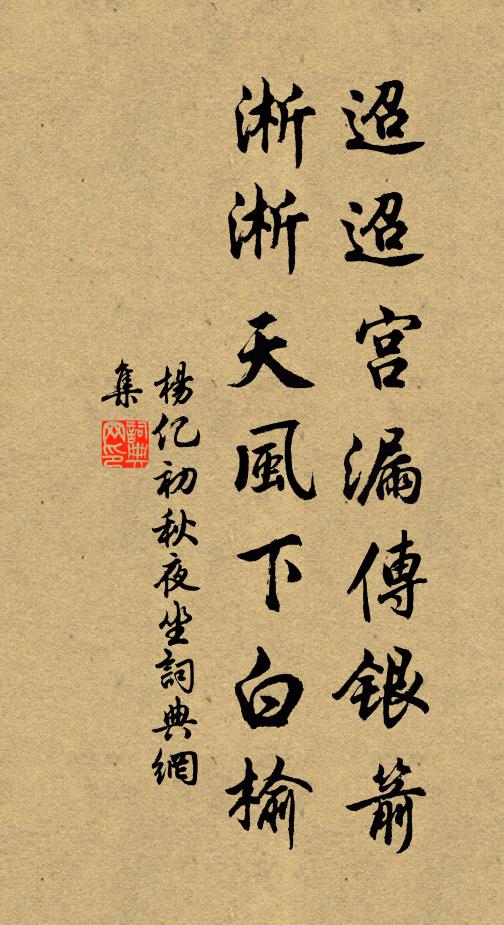 迢迢宮漏傳銀箭
淅淅天風下白榆
楊亿初秋夜坐詞典網
集
詞典
网印